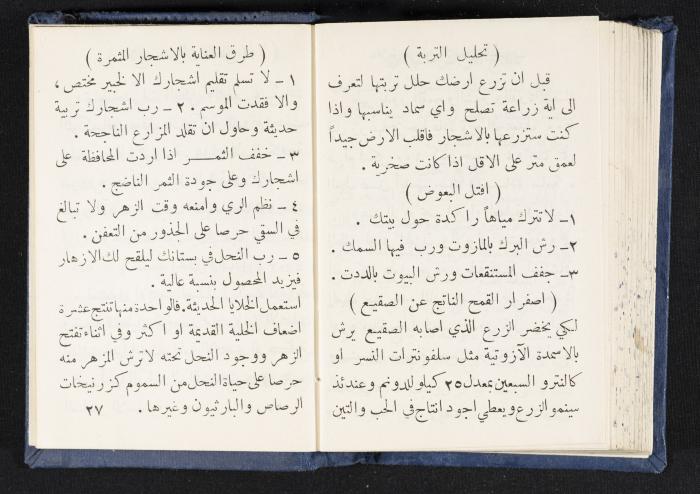 ( تحليل التربة )
قبل ان تزرع ارضك حلل تربتها لتعرف
الى اية زراعة تصلح واي سماد يناسبها واذا
كنت ستزرعها بالاشجار فاقلب الارض جيداً
لعمق متر على الاقل اذا كانت صخرية .
( اقتل البعوض )
١ـ لا تترك مياهاً راكدة حول بيتك .
٢ـ رش البرك بالمازوت ورب فيها السمك .
٣ـ جفف المستنقعات ورش البيوت بالددت .
( اصفرار القمح الناتج عن الصقيع )
لكي يخضر الزرع الذي اصابه الصقيع يرش
بالاسمدة الآزوتية مثل سلفونترات النسر او
كالنترو السبعين بمعدل ٢٥ كيلو للدونم وعندئذ
سينمو الزرع ويعطي اجود انتاج في الحب والتبن
( طرق العناية بالاشجار المثمرة )
١ ـ لا تسلم تقليم اشجارك الا لخبير مختص ،
والا فقدت الموسم . ٢ ـ رب اشجارك تربية
حديثة وحاول ان تقلد المزارع الناجحة .
٣ ـ خفف الثمـــر اذا اردت المحافظة على
اشجارك وعلى جودة الثمر الناضج .
٤ ـ نظم الري وامنعه وقت الزهر ولا تبالغ
في السقي حرصا على الجذور من التعفن .
٥ ـ رب النحل في بستانك ليلقح لك الازهار
فيزيد المحصول بنسبة عالية .
استعمل الخلايا الحديثة . فالواحدة منها تنتج عشرة
اضعاف الخلية القديمة او اكثر وفي اثناء تفتح
الزهر ووجود النحل تحته لا ترش المزهر منه
حرصا على حياة النحل من السموم كزرنيخات
الرصاص والبارثيون وغيرها . ٢٧